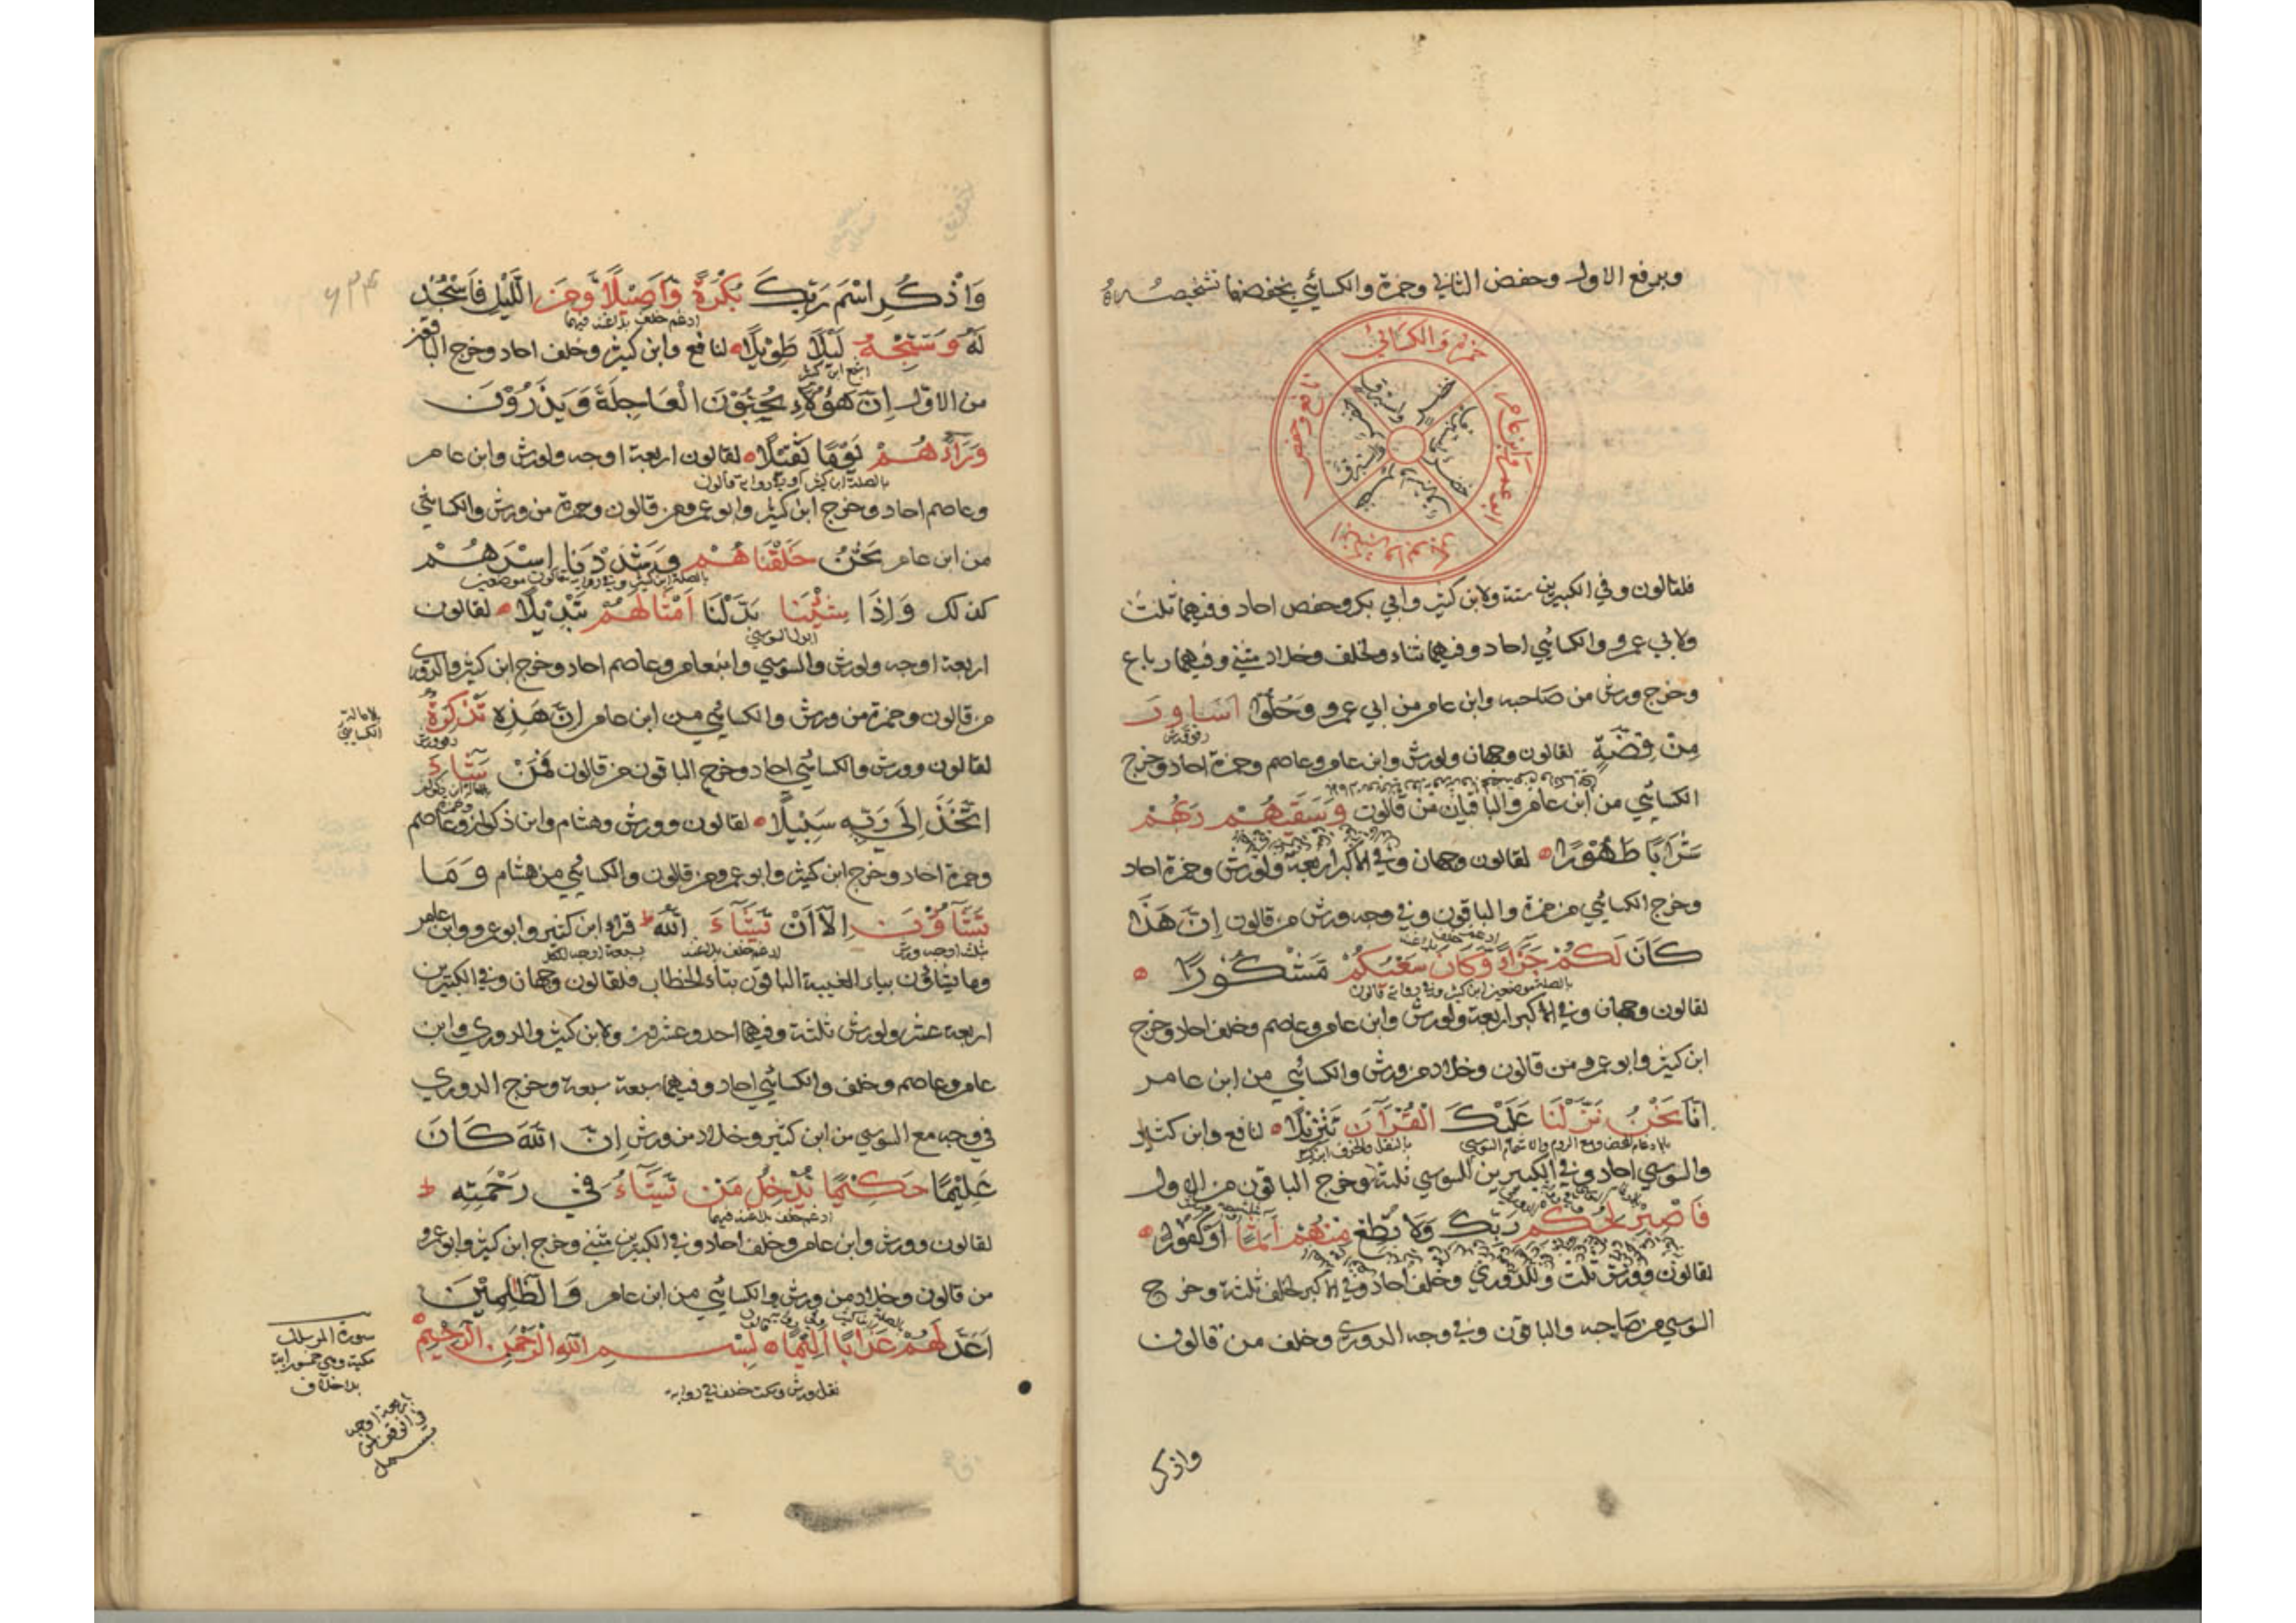 وبرفع الاول وحفض الثاني وحمزة والكسائي بخفضهما تشخيصه
حمزة والكسائي
ابو عمرو وابن عامر
نافع وحفص
فلقالون وفي الكبيرين ستة ولابن كثير وابي بكر وحفص احاد وفيهما ثلث
ولابي عمرو والكسائي احاد وفيهما ثناء ولخلف وخلاد مثنى وفيهما رباع
وخرج ورش من صاحبه وابن عامر من ابي عمرو وَحُلُّوا اَسَاوِرَ
مِنْ فِضَّةٍ لقالون وجهان ولورش وابن عامر وعاصم وحمزة احاد وخرج
الكسائي من ابن عامر والباقيان من قالون وَسَقٰيهُمْ رَبُّهُمْ
شَرَابًا طَهُوْرًا لقالون وجهان وفي الاكبر اربعة ولورش وحمزة احاد
وخرج الكسائي من حمزة والباقون وفي وجه ورش من قالون اِنَّ هَذَا
كَانَ لَكُمْ جَزَاءً وَّكَانَ سَعْيُكُمْ مَّشْكُوْرًا
بالصلة موضعين ابن كثير وفي رواية قالون
لقالون وجهان وفي الاكبر اربعة ولورش وابن عامر وعاصم وخلف احاد وخرج
ابن كثير وابو عمرو من قالون وخلاد من ورش والكسائي من ابن عامر
اِنَّا نَحْنُ نَزَّلْنَا عَلَيْكَ الْقُرْآنَ تَنْزِيْلًا لنافع وابن كثير
والسوسي احاد وفي الكبيرين للسوسي ثلثة وخرج الباقون من الاول
فَاصْبِرْ لِحُكْمِ رَبِّكَ وَلَا تُطِعْ مِنْهُمْ اٰثِمًا اَوْ كَفُوْرًا
لقالون وورش ثلث وللدوري وخلف احاد وفي الاكبر لخلف ثلثة وخرج
السوسي من صاحبه والباقون وفي وجه الدوري وخلف من قالون
واذكر
وَاذْكُرِ اسْمَ رَبِّكَ بُكْرَةً وَّاَصِيْلًا وَّمِنَ الَّيْلِ فَاسْجُدْ
ادغم خلف بلا غنة فيهما
لَهُ وَسَبِّحْهُ لَيْلًا طَوِيْلًا لنافع وابن كثير وخلف احاد وخرج الباقون
اشبع ابن كثير
من الاول اِنَّ هٰؤُلَاءِ يُحِبُّوْنَ الْعَاجِلَةَ وَيَذَرُوْنَ
وَرَاءَهُمْ يَوْمًا ثَقِيْلًا لقالون اربعة اوجه ولورش وابن عامر
بالصلة ابن كثير وفي رواية قالون
وعاصم احاد وخرج ابن كثير وابو عمرو من قالون وحمزة من ورش والكسائي
من ابن عامر نَحْنُ خَلَقْنَاهُمْ وَشَدَدْنَا اَسْرَهُمْ
بالصلة ابن كثير وفي رواية قالون موضعين
كذلك وَاِذَا شِئْنَا بَدَّلْنَا اَمْثَالَهُمْ تَبْدِيْلًا لقالون
ابدل السوسي
اربعة اوجه ولورش والسوسي وابن عامر وعاصم احاد وخرج ابن كثير والدوري
من قالون وحمزة من ورش والكسائي من ابن عامر اِنَّ هٰذِهِ تَذْكِرَةٌ
بالامالة
الكسائي
لقالون وورش والكسائي احاد وخرج الباقون من قالون فَمَنْ شَاءَ
اتَّخَذَ اِلَى رَبِّهِ سَبِيْلًا لقالون وورش وهشام وابن ذكوان وعاصم
وحمزة احاد وخرج ابن كثير وابو عمرو من قالون والكسائي من هشام وَمَا
تَشَاءُوْنَ اِلَّا اَنْ يَّشَاءَ اللهُ ط قراء ابن كثير وابو عمرو وابن عامر
ثلث اوجه ورش ادغم خلف بلا غنة سبعة اوجه لكل
وما يشاؤن بياء الغيبة الباقون بتاء الخطاب فلقالون وجهان وفي الكبيرين
اربعة عشر ولورش ثلثة وفيهما احد وعشرون ولابن كثير والدوري وابن
عامر وعاصم وخلف والكسائي احاد وفيهما سبعة سبعة وخرج الدوري
في وجه مع السوسي من ابن كثير وخلاد من ورش اِنَّ اللهَ كَانَ
عَلِيْمًا حَكِيْمًا يُّدْخِلُ مَنْ يَّشَاءُ فِي رَحْمَتِهِ ط
ادغم خلف بلا غنة فيهما
لقالون وورش وابن عامر وخلف احاد وفي الكبيرين مثنى وخرج ابن كثير وابو عمرو
من قالون وخلاد من ورش والكسائي من ابن عامر وَالظّٰلِمِيْنَ
اَعَدَّ لَهُمْ عَذَابًا اَلِيْمًا بِسْمِ اللهِ الرَّحْمٰنِ الرَّحِيْمِ
نقل ورش وسكت خلف في رواية
سورة المرسلت
مكية وهي خمسون اية
بلا خلاف
اربعة اوجه